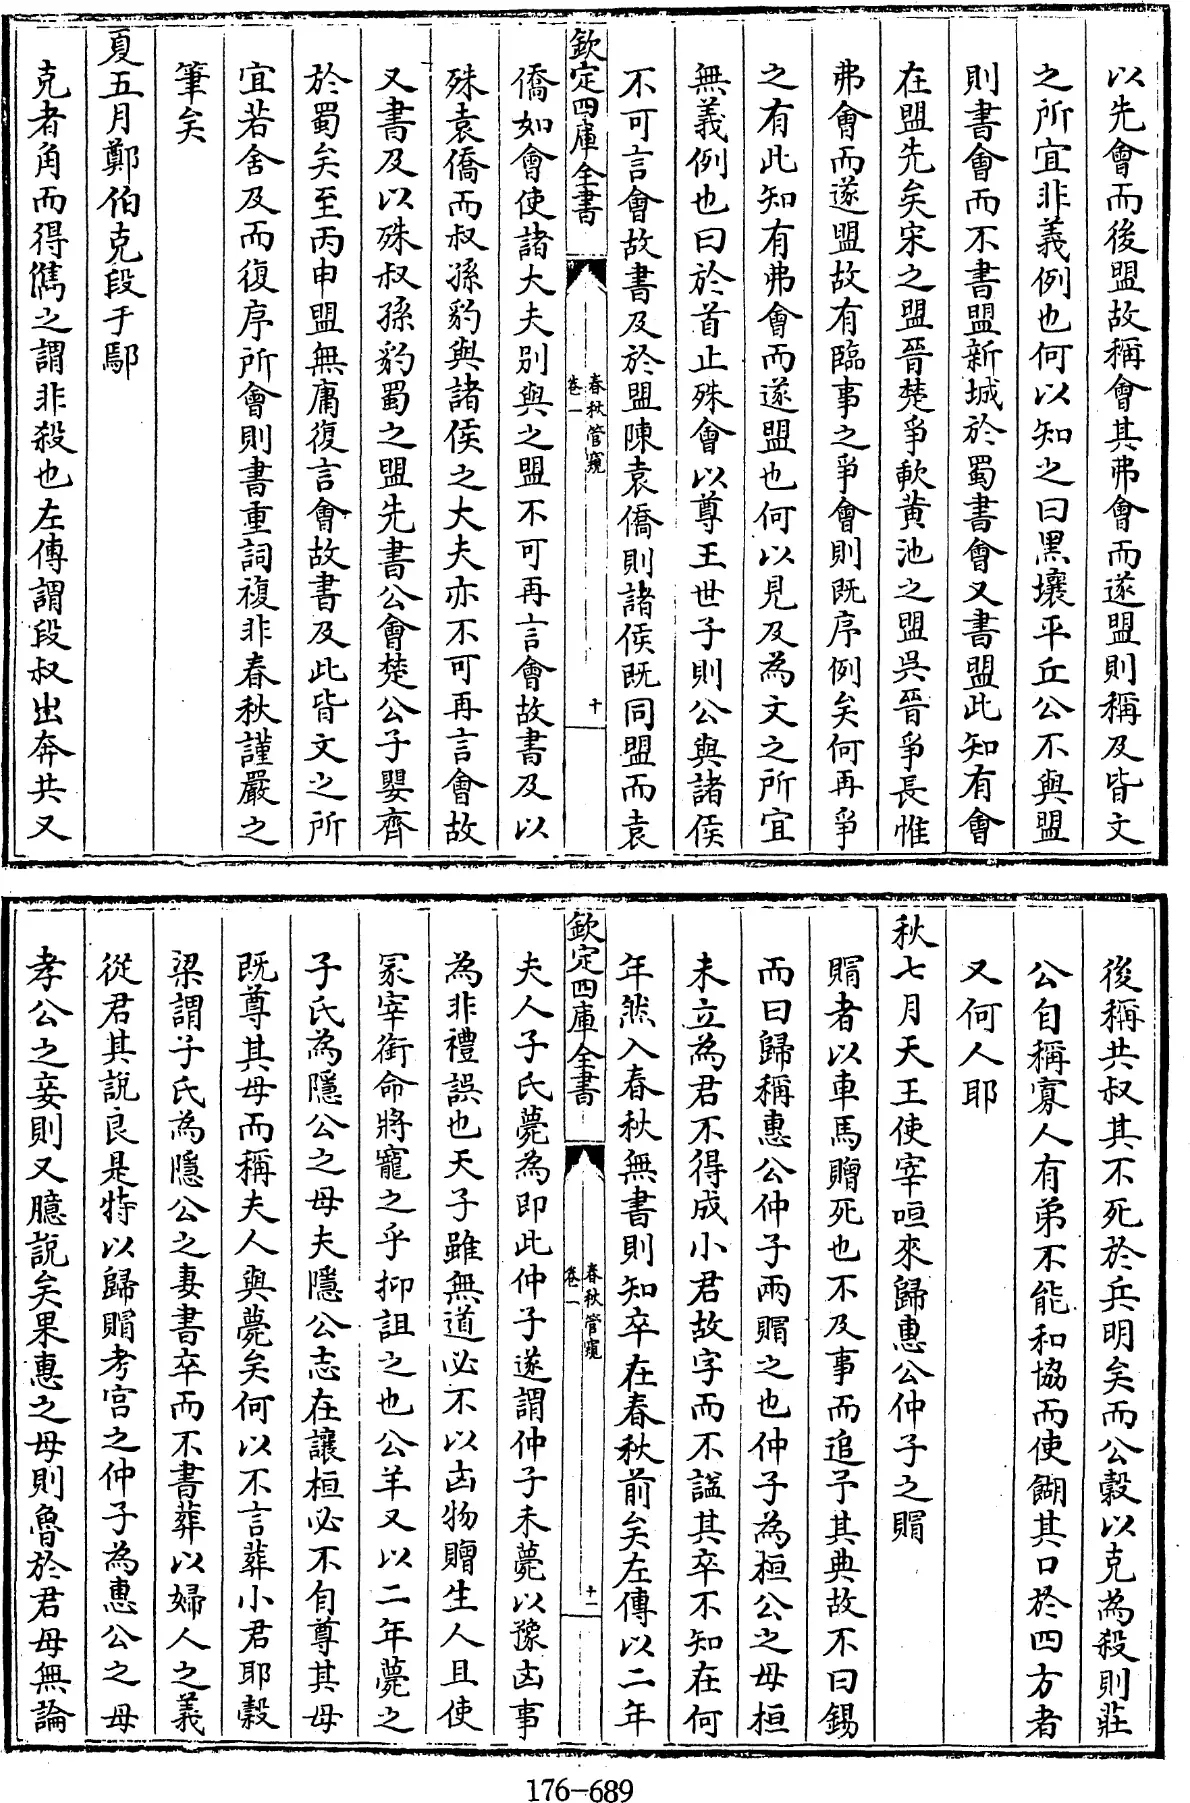 以先會而後盟故稱會其弗會而遂盟則稱及皆文
之所宜非義例也何以知之曰黑壤平丘公不與盟
則書會而不書盟新城於蜀書會又書盟此知有會
在盟先矣宋之盟晉楚爭軟黃池之盟吳晉爭長惟
弗會而遂盟故有臨事之爭會則既序例矣何再爭
之有此知有弗會而遂盟也何以見及為文之所宜
無義例也曰於首止殊會以尊王世子則公與諸侯
不可言會故書及於盟陳袁僑則諸侯既同盟而袁
欽定四庫全書
春秋管窺
卷一
十
僑如會使諸大夫別與之盟不可再言會故書及以
殊袁僑而叔孫豹與諸侯之大夫亦不可再言會故
又書及以殊叔孫豹蜀之盟先書公會楚公子嬰齊
於蜀矣至丙申盟無庸復言會故書及此皆文之所
宜若舍及而復序所會則書重詞複非春秋謹嚴之
筆矣
夏五月鄭伯克段于鄢
克者角而得儁之謂非殺也左傳謂段叔出奔共又
後稱共叔其不死於兵明矣而公穀以克為殺則莊
公自稱寡人有弟不能和協而使餬其口於四方者
又何人耶
秋七月天王使宰咺來歸惠公仲子之賵
賵者以車馬贈死也不及事而追予其典故不曰錫
而曰歸稱惠公仲子兩賵之也仲子為桓公之母桓
未立為君不得成小君故字而不謚其卒不知在何
年然入春秋無書則知卒在春秋前矣左傳以二年
欽定四庫全書
春秋管窺
卷一
十一
夫人子氏薨為即此仲子遂謂仲子未薨以豫凶事
為非禮誤也天子雖無道必不以凶物贈生人且使
冡宰銜命將寵之乎抑詛之也公羊又以二年薨之
子氏為隱公之母夫隱公志在讓桓必不自尊其母
既尊其母而稱夫人與薨矣何以不言葬小君耶穀
梁謂子氏為隱公之妻書卒而不書葬以婦人之義
從君其說良是特以歸賵考宮之仲子為惠公之母
孝公之妾則又臆說矣果惠之母則魯於君母無論
176-689